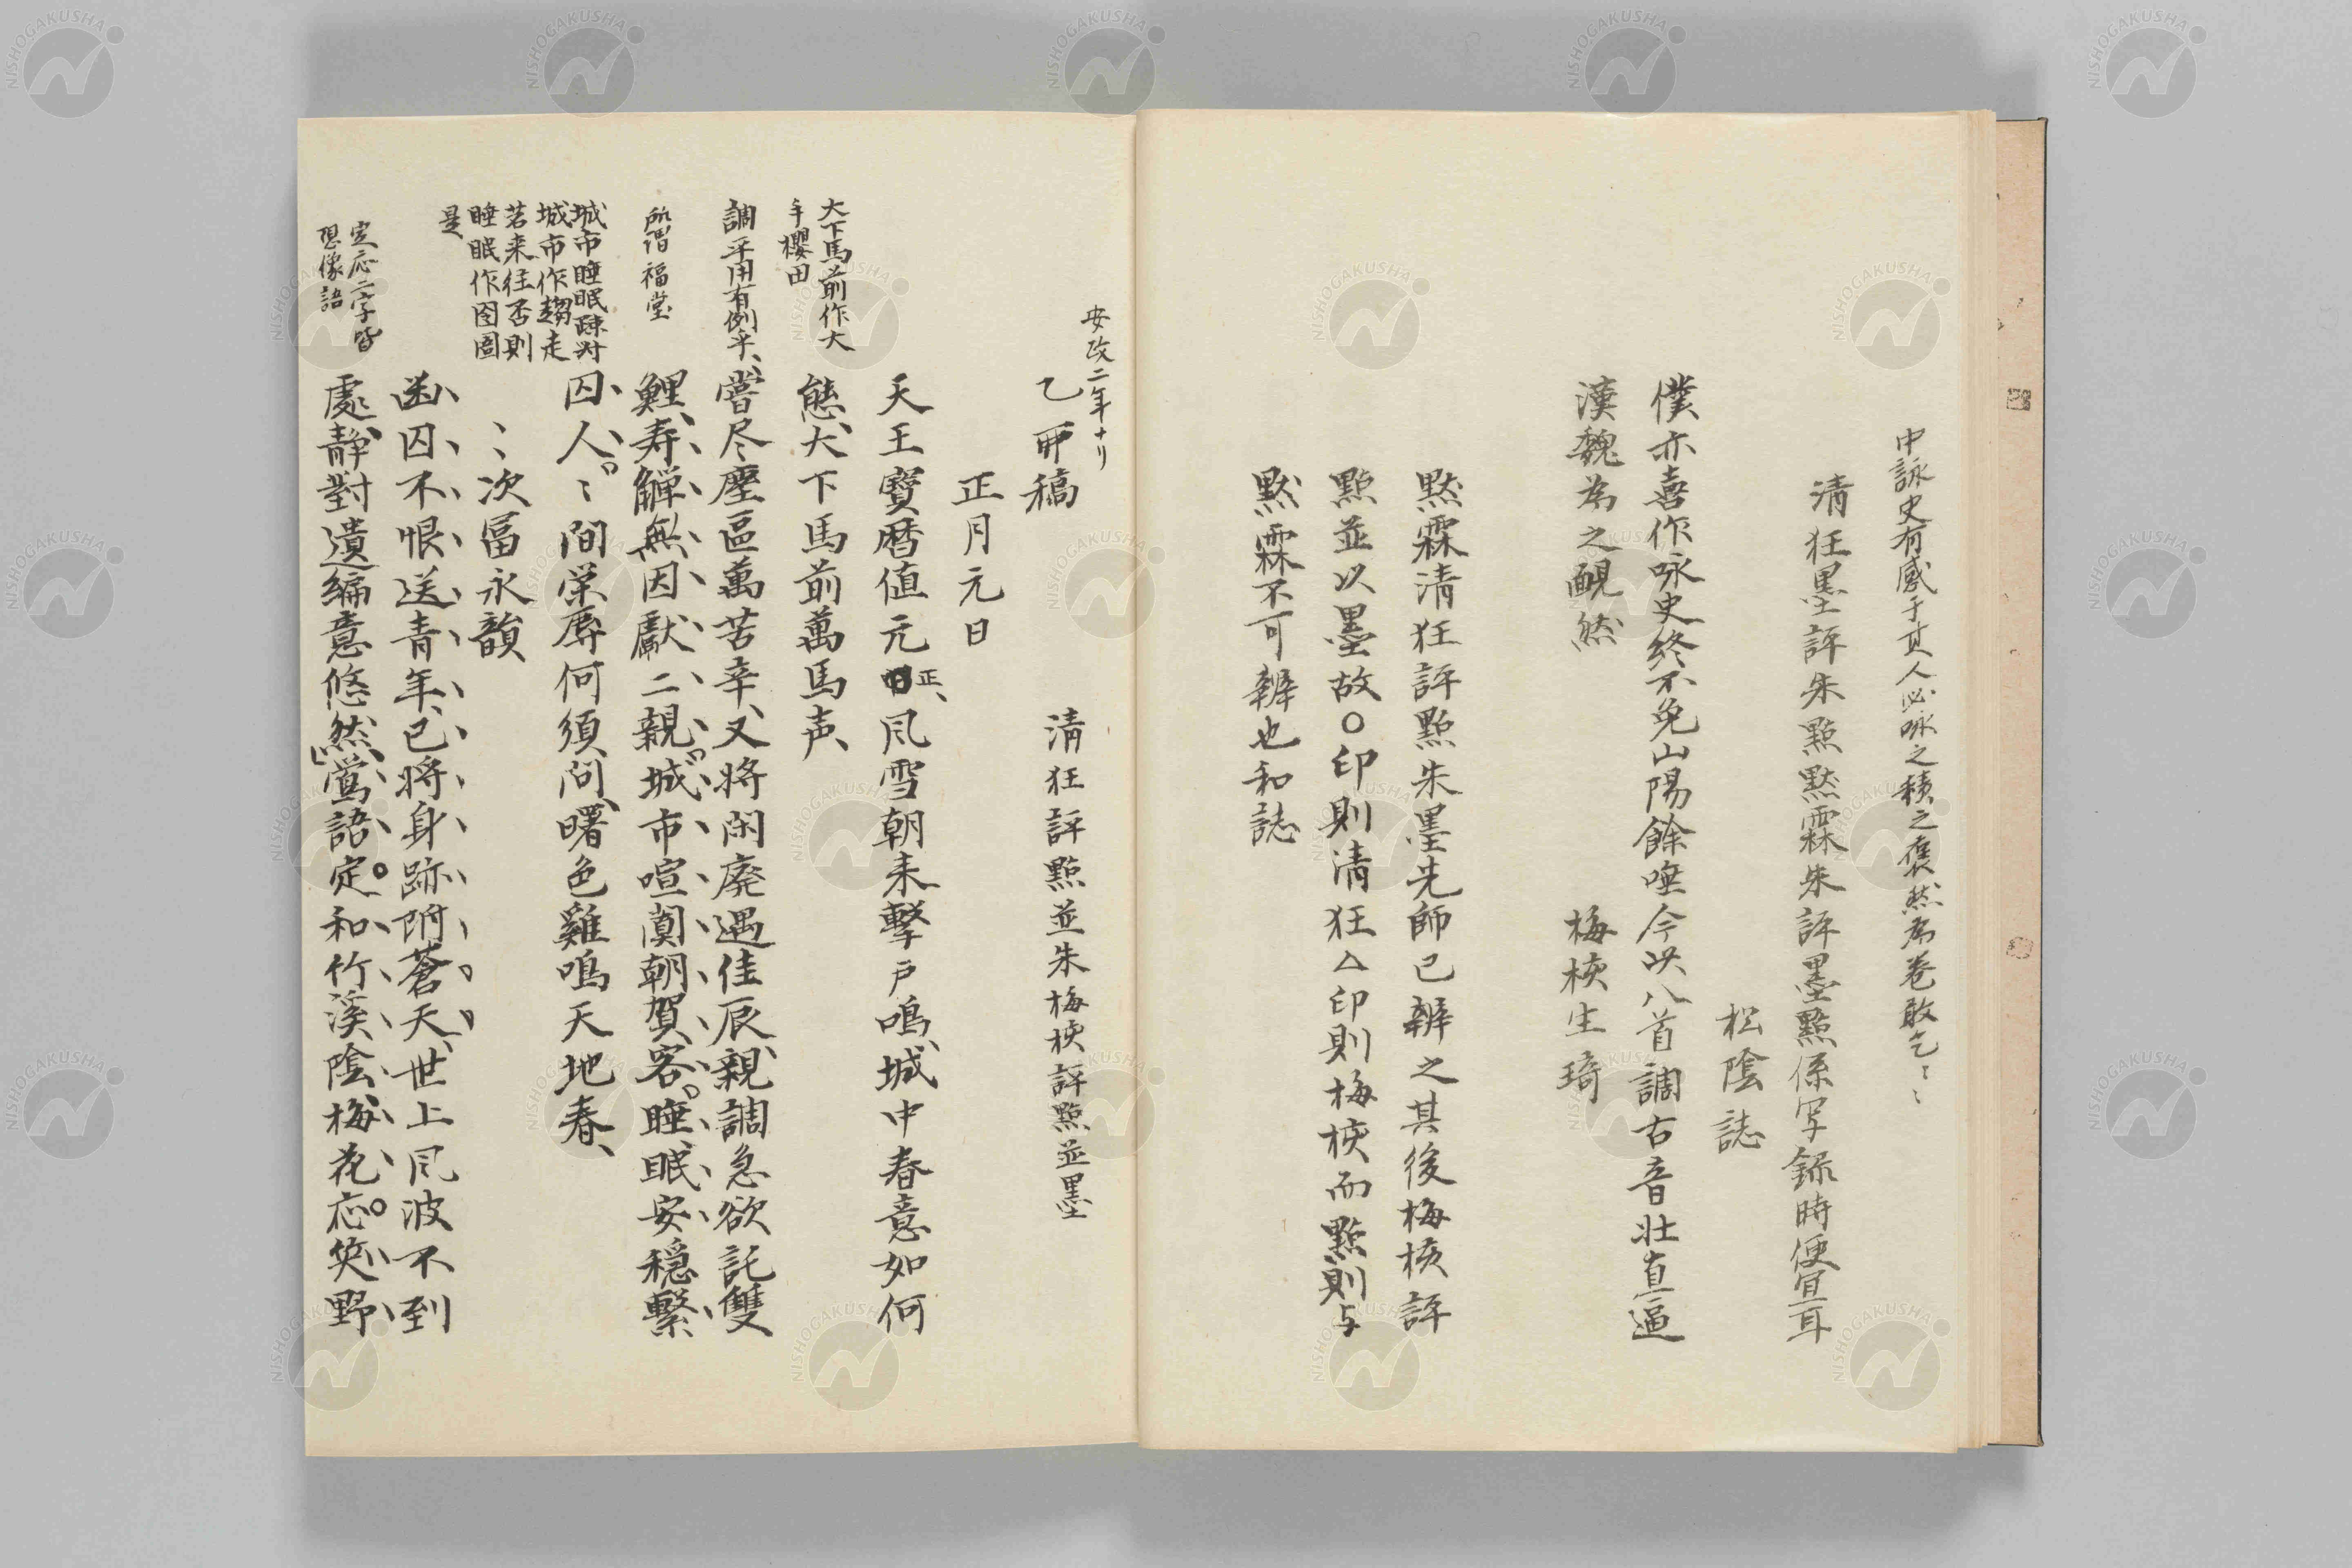 中詠史有感于其人必咏之積之裒然為卷敢乞〻〻
清狂墨評朱點黙霖朱評墨點係写録時便宜耳
松陰誌
僕亦喜作咏史終不免山陽餘唾今此八首調古音壮直逼
漢魏為之靦然
梅梜生琦
黙霖清狂評點朱墨先師已辨之其後梅梜評
點並以墨故〇印則清狂△印則梅梜而點則与
黙霖不可辨也和誌
安政二年ナリ
乙卯稿
清狂評點並朱梅梜評點並墨
正月元日
天王寶暦値元正風雪朝来撃戸鳴城中春意如何
態大下馬前萬馬声
大下馬前作大
手櫻田
嘗尽塵區萬苦辛又将閑廃遇佳辰親調急欲託雙
調平用有例乎
鯉寿觶無因獻二親城市喧闐朝賀客睡眠安穏繋
所謂福堂
囚人〻間栄辱何須問曙色雞鳴天地春
城市睡眠疎対
城市作趨走
若来往否則
睡眠作囹圄
是
〻次冨永韻
幽囚不恨送青年已将身跡附蒼天世上風波不到
處静對遺編意悠然鶯語定和竹溪陰梅花応笑野
定応二字皆
想像語